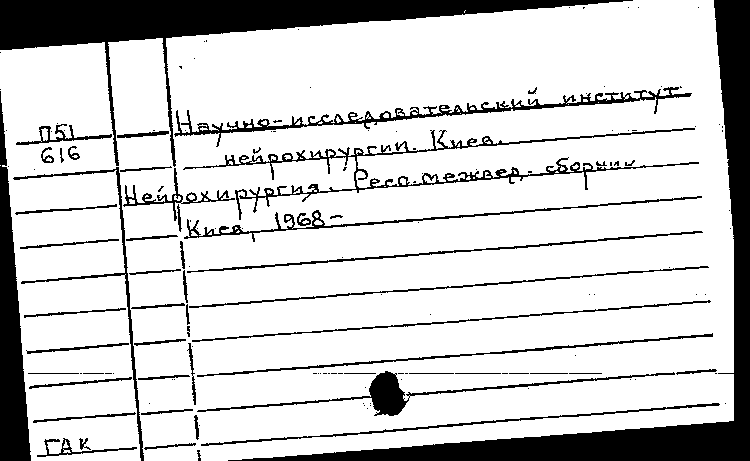 П51
616
Научно-исследовательский институт
нейрохирургии. Киев.
Нейрохирургия. Респ. межвед. сборник.
Киев, 1968-
ГАК